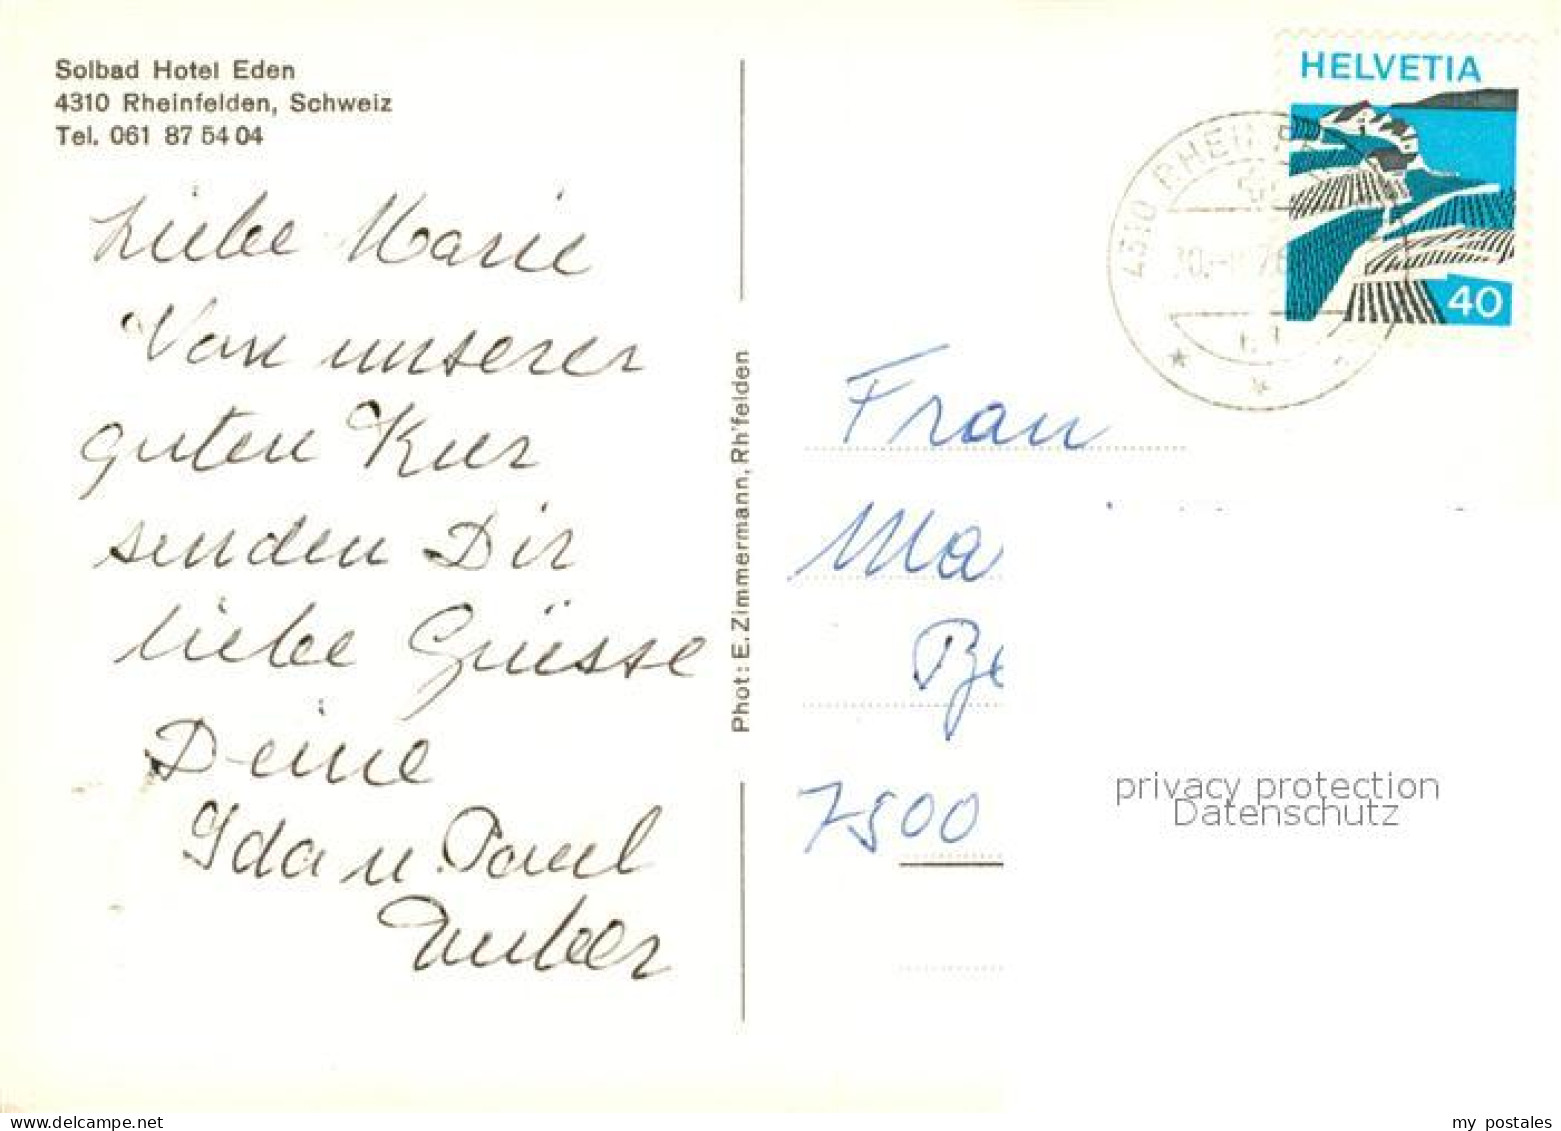 Solbad Hotel Eden
4310 Rheinfelden, Schweiz
Tel. 061 87 54 04
Liebe Marie
Von unserer
guten Kur
senden Dir
liebe Grüsse
Deine
Ida u. Paul
Phot: E. Zimmermann, Rh'felden
HELVETIA
40
4310 RHEINFE
Frau
Ma
Be
7500
privacy protection
Datenschutz
www.delcampe.net
my_postales